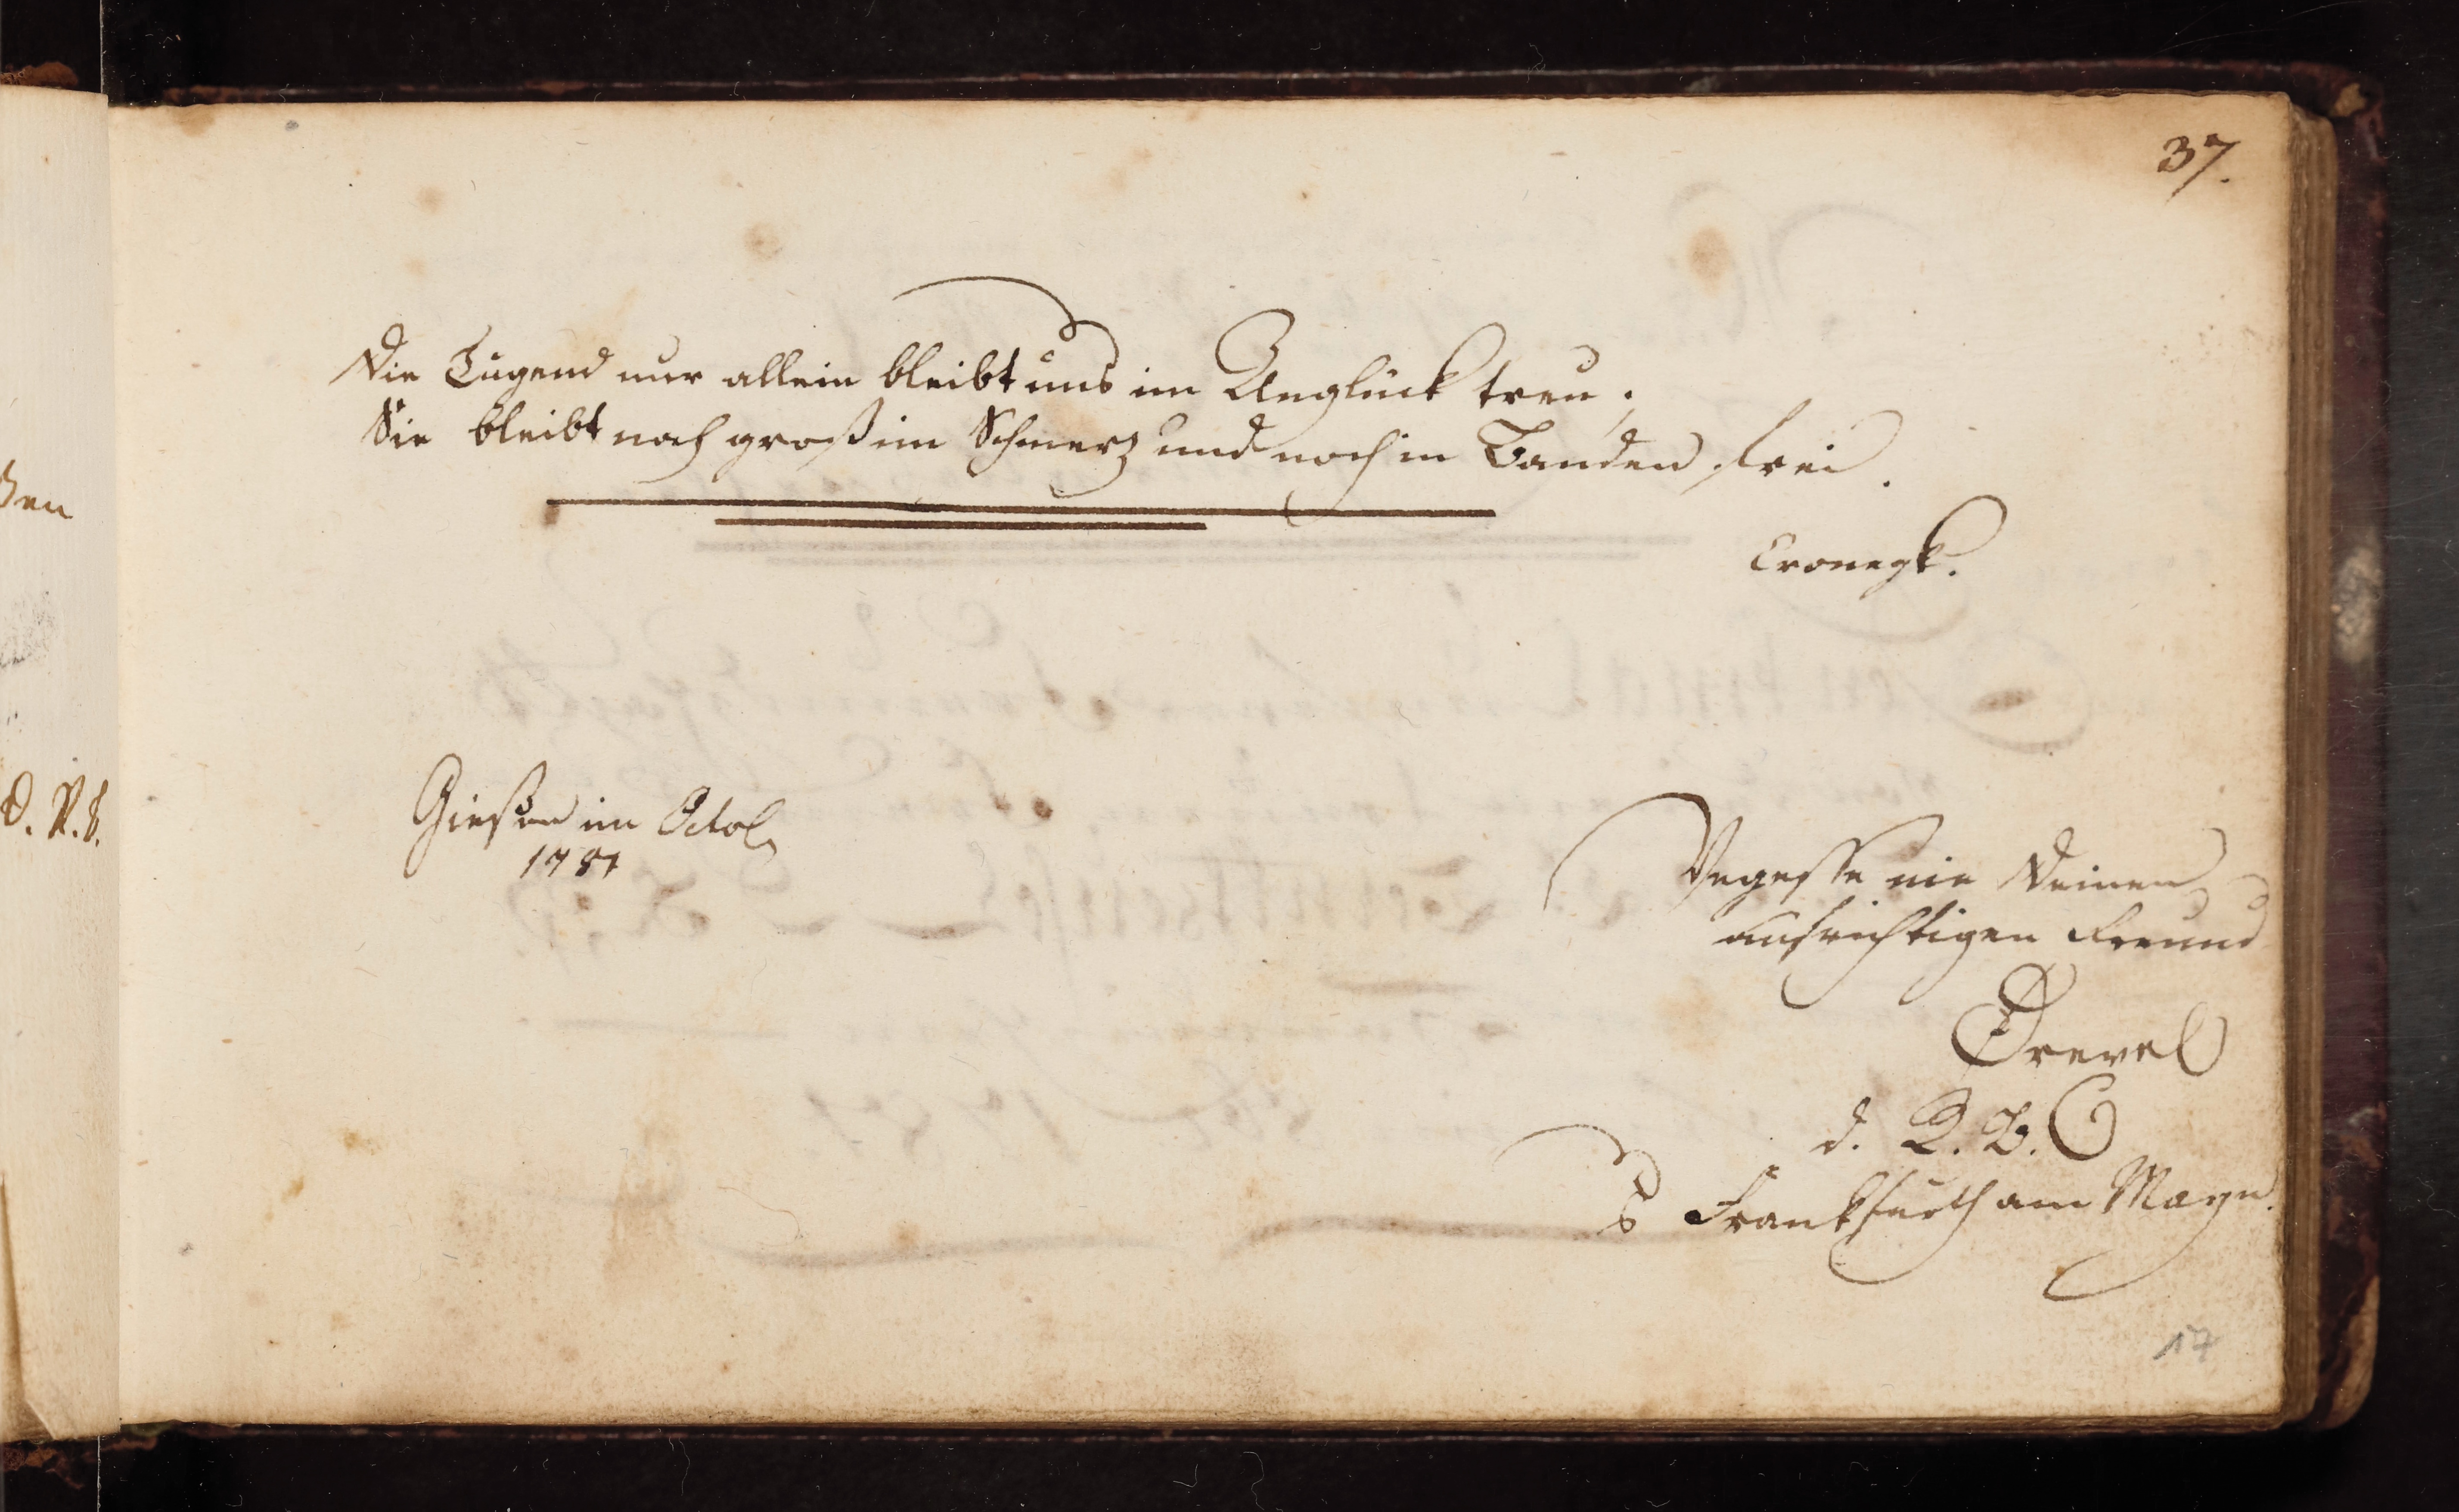 37.
Die Tugend nur allein bleibt uns im Unglück treu;
Sie bleibt noch groß im Schmerz und noch in Banden frei.
Cronegk.
Gießen im Octob
1781
Vegesse nie Deinen
aufrichtigen Freund
Drevel
d. G. B.
Frankfurth am Mayn.
17